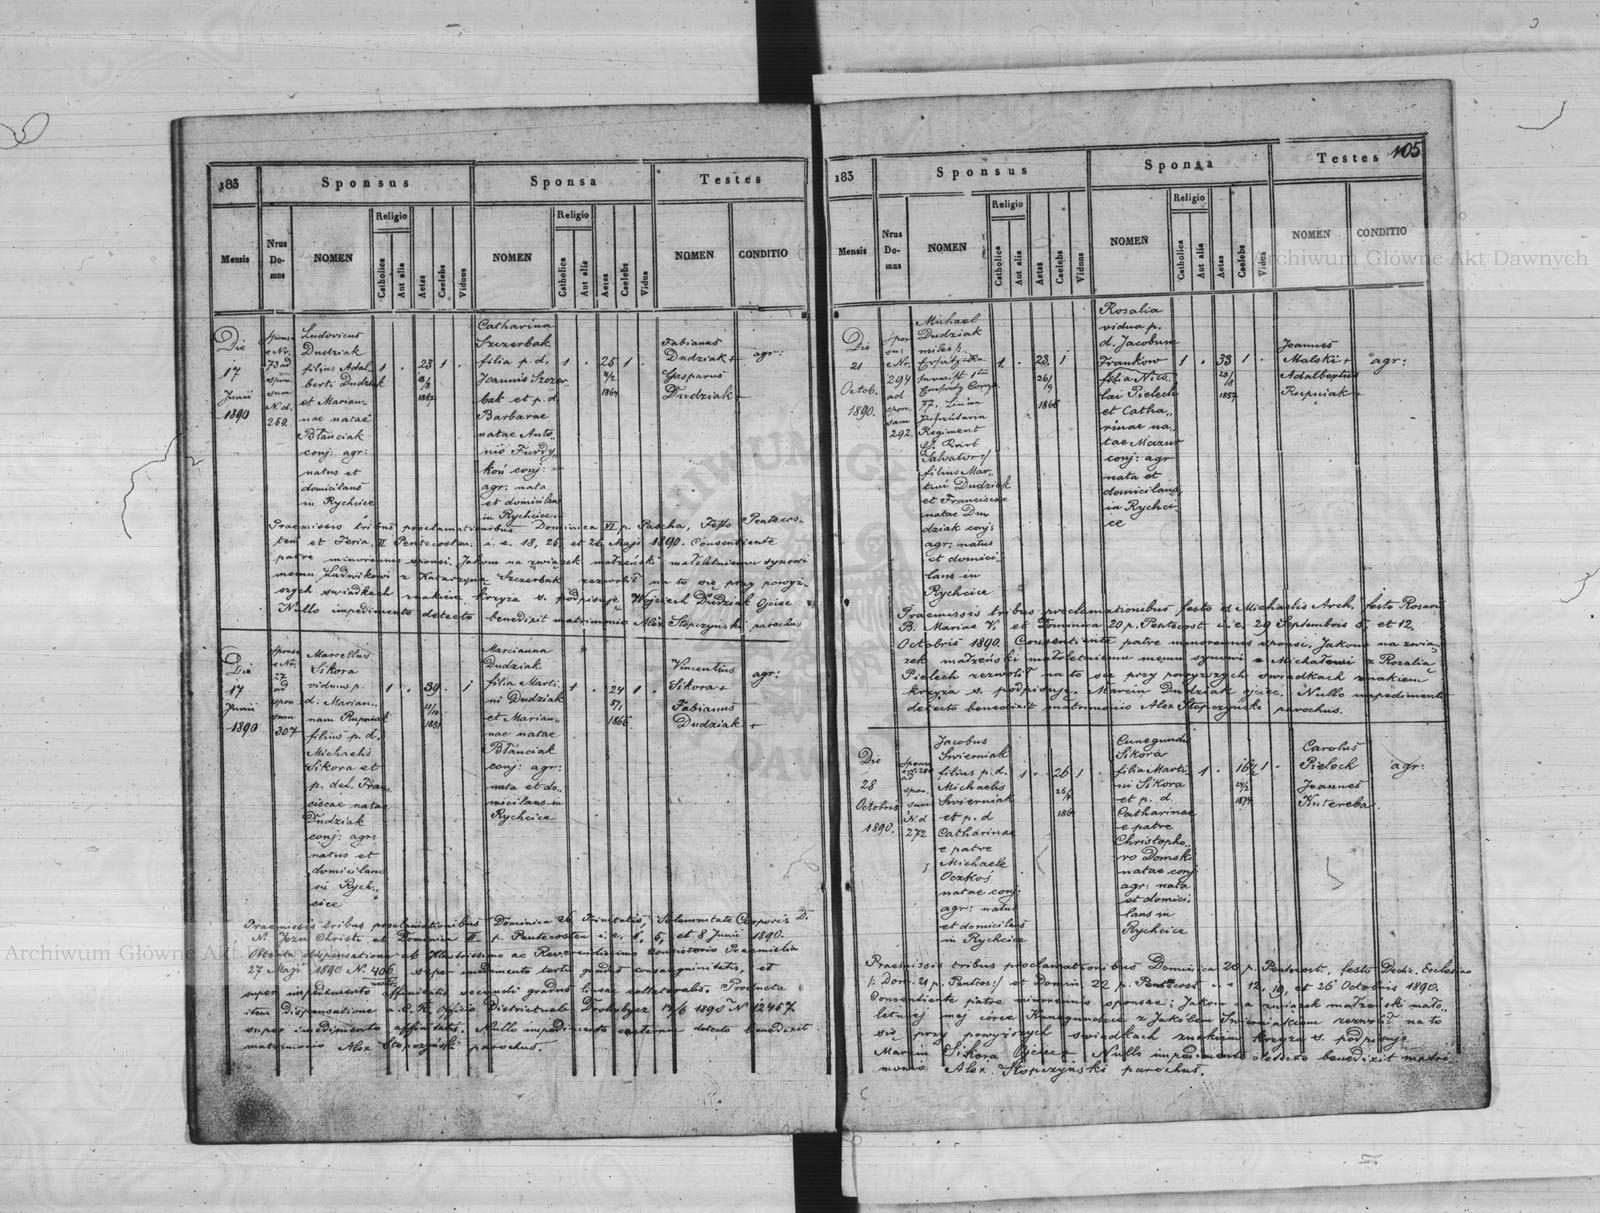 105
183
Sponsus
Sponsa
Testes
Mensis
Nrus Domus
NOMEN
Religio
Catholica
Aut alia
Aetas
Caelebs
Viduus
NOMEN
Religio
Catholica
Aut alia
Aetas
Caelebs
Vidua
NOMEN
CONDITIO
Die
17
Junii
1890
Ludovicus
Dudziak
filius Adal
berti Dudziak
et Marian
nae natae
Błanciak
conj: agr:
natus et
domicilans
in Rychcice
1
23
1
1867
Catharina
Szczerbak
filia p. d.
Joannis Szczer
bak et p. d.
Barbarae
natae Anto
nio Furdy
conj:
agr: nata
et domicilans
in Rychcice
1
25
1
1864
Fabianus
Dudziak +
Gasparus
Dudziak +
agr:
Praemissis tribus proclamationibus Dominica VI p. Pascha, Festo Pentecos-
ten et Feria II Pentecosten i. e. 18, 25, et 26 Maji 1890. Consentiente
patre minorennis sponsi. Jakom na związek małżeński małoletniemu synowi
memu Ludwikowi z Katarzyną Szczerbak zezwolił na to się przy powyż-
szych świadkach znakiem krzyża s. podpisuję Wojciech Dudziak Ojciec
Nullo impedimento detecto benedixit matrimonio Alex Stopczyński parochus
Die
17
Junii
1890
307
Marcellus
Sikora
viduus p.
d. Marian
nam Rupniak
filius p. d.
Michaelis
Sikora et
p. def. Fran
siscae natae
Dudziak
conj: agr:
natus et
domicilans
in Rych
cice
1
39
1
1851
Marcianna
Dudziak
filia Marti
ni Dudziak
et Marian
nae natae
Błanciak
conj: agr:
nata et do
micilans in
Rychcice
1
24
1
1866
Vincentius
Sikora +
Fabianus
Dudziak +
agr:
Praemissis tribus proclamationibus Dominica SS. Trinitatis, Solemnitate Corporis D.
N. Jezu Christi et Dominica II p. Pentecosten i. e. 1, 5, et 8 Junii 1890.
Obtenta dispensatione ab Illustrissimo ac Reverendissimo Consistorio Praemislia
27 Maji 1890 N. 406 super impedimento tertii gradus consanguinitatis, et
super impedimento affinitatis secundi gradus lineae collateralis. Producta
item Dispensatione a C. R. Officio Districtuale Drohobycz 13/6 1890 N 12457.
super impedimento affinitatis. Nullo impedimento caeterum detecto benedixit
matrimonio Alex Stopczyński parochus.
183
Sponsus
Sponsa
Testes
Mensis
Nrus Domus
NOMEN
Religio
Catholica
Aut alia
Aetas
Caelebs
Viduus
NOMEN
Religio
Catholica
Aut alia
Aetas
Caelebs
Vidua
NOMEN
CONDITIO
Die
21
Octob.
1890.
294
292.
Michael
Dudziak
miles
77. Linien
Infanterie
Regiment
Salvator
filius Mar
tini Dudziak
et Franciscae
natae Du
dziak conj:
agr: natus
et domici
lans in
Rychcice
1
23
1
1866
Rosalia
vidua p.
d. Jacobum
Frankow
filia Nico
lai Pielech
et Catha
rinae na
tae Mazur
conj: agr
nata et
domicilans
in Rychci
ce
1
33
1
1857
Joannes
Malski +
Adalbertus
Rupniak +
agr:
Praemissis tribus proclamationibus festo S Michaelis Arch. festo Rosarii
B. Mariae V. et Dominica 20 p. Pentecost i. e. 29 Septembris 5, et 12.
Octobris 1890. Consentiente patre minorennis sponsi. Jakom na zwią-
zek małżeński małoletniemu memu synowi Michałowi z Rozalią
Pielech zezwolił na to się przy powyższych świadkach znakiem
krzyża s. podpisuję. Marcin Dudziak ojciec. Nullo impedimento
detecto benedixit matrimonio Alex Stopczyński parochus.
Die
28
Octobris
1890.
272
Jacobus
Świerniak
filius p. d.
Michaelis
Świerniak
et p. d
Catharinae
e patre
Michaele
Oczkoś
natae conj:
agr: natus
et domicilans
in Rychcice
1
26
1
Cunegunda
Sikora
filia Marti
ni Sikora
et p. d.
Catharinae
e patre
Christopho
ro Domski
natae conj
agr: nata
et domici
lans in
Rychcice
1
1
1874
Carolus
Pielech
Joannes
Kntereba
agr:
Praemissis tribus proclamationibus Dominica 20 p. Pentecost., festo Dedic. Ecclesiae
/: Dom. 21 p. Pentcos:/ et Domin 22 p. Pentecost i. e 12, 19, et 26 Octobris 1890.
Consentiente patre minorennis sponsae: Jakom na związek małżeński mało
letniej mej córce Kunegundzie z Jakóbem Świerniakiem zezwolił na to
się przy powyższych świadkach znakiem krzyża s. podpisuję
Marcin Sikora Ojciec + Nullo impedimento detecto benedixit matri
monio Alex. Stopczyński parochus.
Archiwum Główne Akt Dawnych
Archiwum Główne Akt Dawnych